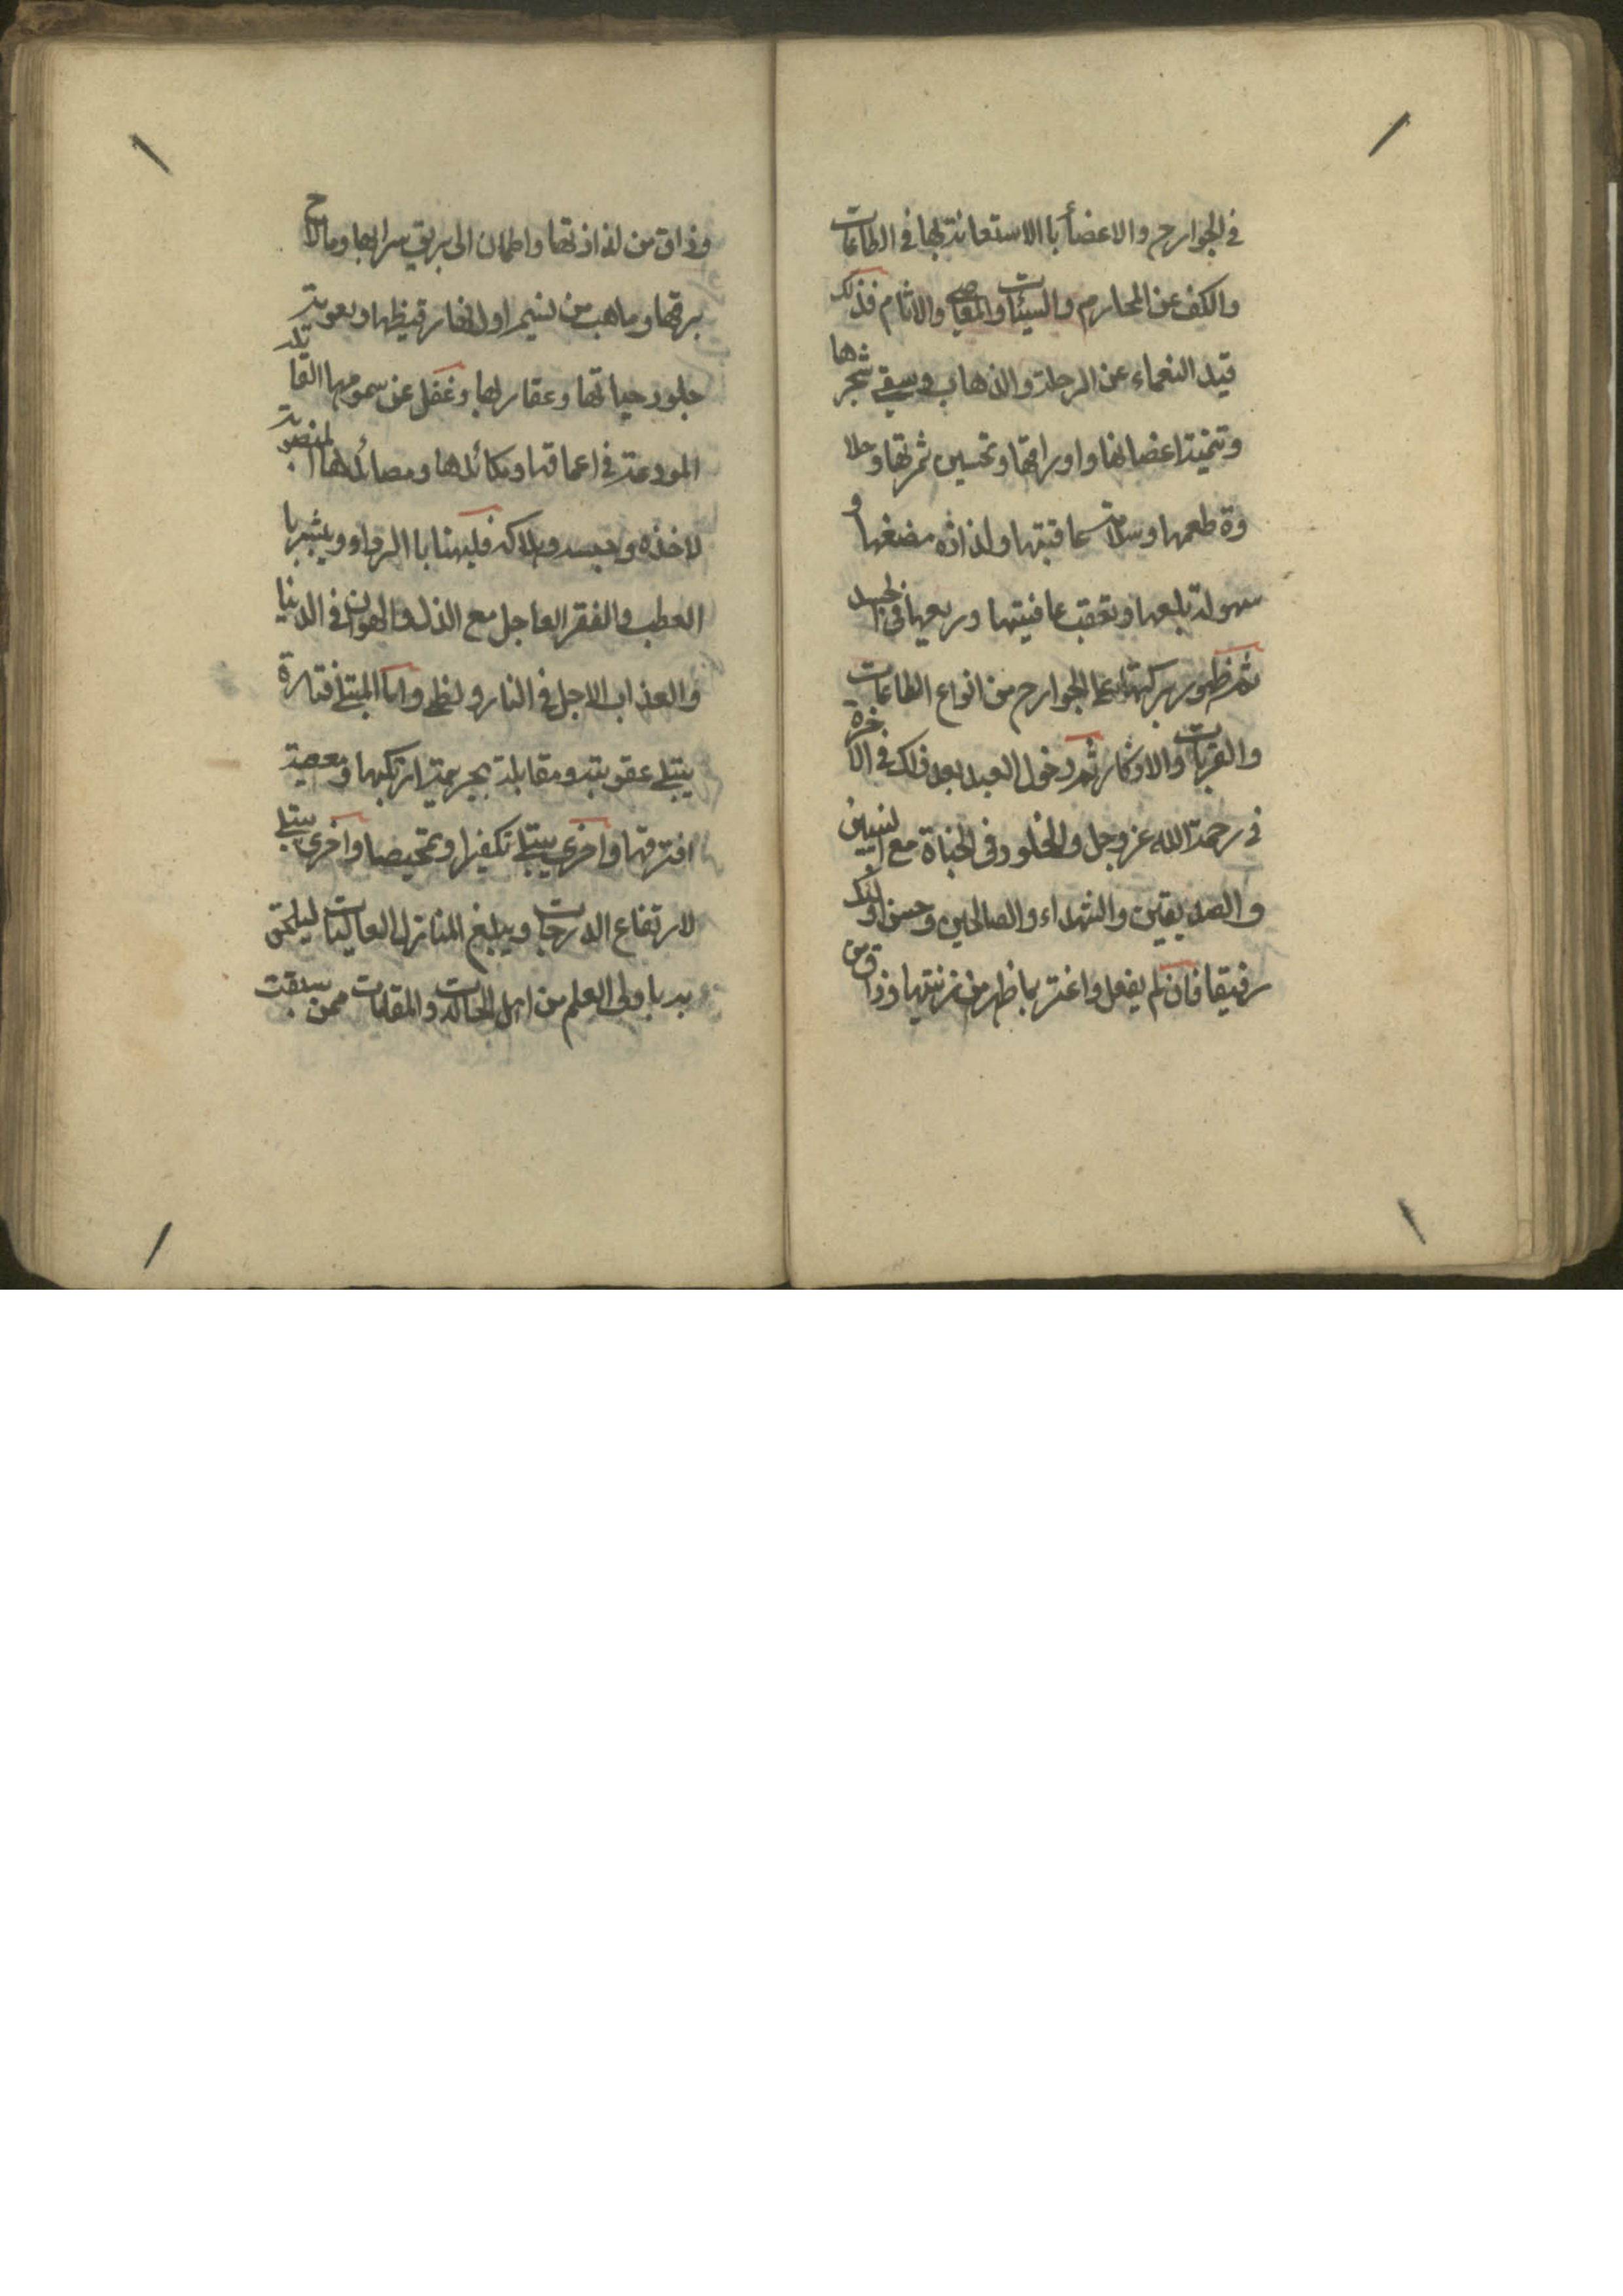 في الجوارح والاعضأ با الاستعانة بها في الطاعات
والكف عن المحارم والسيئات والمعاصي والاثام فذلك
قيد النعماء عن الرحلة والذهاب وسقي شجرها
وتنمية اغصانها واوراقها وتحسين ثمرتها وحلا
وة طعمها وسلامة عاقبتها ولذاذه مضغها و
سهولة بلعها وتعقب عافيتها وريعها في الجسد
ثم ظهور بركتها على الجوارح من انواع الطاعات
والقربات والاذكار ثم دخول العبد بعد ذلك في الاخرة
في رحمة الله عز وجل والخلود في الجناة مع النبيين
والصديقين والشهداء والصالحين وحسن اولئك
رفيقا فان لم يفعل واغتر بما ظهر من زينتها وذاق من
وذاق من لذاذتها واطمان الى بريق سرابها ومالاح
برقها وما هب من نسيم اول نهار قيظها ونعومة
جلود حياتها وعقاربها وغفل عن سمومها القاتلة
المودعة في اعماقها ومكائدها ومصائدها المنصوبة
لاخذه وحبسه وهلاكه فليهنا با الردا وويشير با
العطب والفقر العاجل مع الذل والهوان في الدنيا
والعذاب الاجل في النار ولظى واما المبتلى فتارة
يبتلى عقوبته ومقابلة بجريمة ارتكبها ومعصية
اقترفها واخرى يبتلى تكفيرا وتمحيصا واخرى يبتلى
لارتفاع الدرجات ويبلغ المنازل العاليات ليلحق
به باولى العلم من اهل الحالات والمقامات ممن سبقت